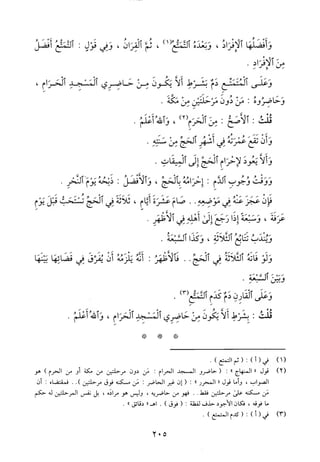 وَأَفْضَلُهَا الْإِفْرَادُ ، وَبَعْدَهُ التَّمَتُّعُ(١) ، ثُمَّ الْقِرَانُ ، وَفِي قَوْلٍ : التَّمَتُّعُ أَفْضَلُ
مِنَ الْإِفْرَادِ .
وَعَلَى الْمُتَمَتِّعِ دَمٌ بِشَرْطِ أَلَّا يَكُونَ مِنْ حَاضِرِي الْمَسْجِدِ الْحَرَامِ ،
وَحَاضِرُوهُ : مَنْ دُونَ مَرْحَلَتَيْنِ مِنْ مَكَّةَ .
قُلْتُ : الْأَصَحُّ : مِنَ الْحَرَمِ(٢) ، وَاللهُ أَعْلَمُ .
وَأَنْ تَقَعَ عُمْرَتُهُ فِي أَشْهُرِ الْحَجِّ مِنْ سَنَتِهِ .
وَأَلَّا يَعُودَ لِإِحْرَامِ الْحَجِّ إِلَى الْمِيقَاتِ .
وَوَقْتُ وُجُوبِ الدَّمِ : إِحْرَامُهُ بِالْحَجِّ ، وَالْأَفْضَلُ : ذَبْحُهُ يَوْمَ النَّحْرِ .
فَإِنْ عَجَزَ عَنْهُ فِي مَوْضِعِهِ.. صَامَ عَشَرَةَ أَيَّامٍ ، ثَلَاثَةً فِي الْحَجِّ تُسْتَحَبُّ قَبْلَ يَوْمِ
عَرَفَةَ ، وَسَبْعَةً إِذَا رَجَعَ إِلَى أَهْلِهِ فِي الْأَظْهَرِ .
وَيُنْدَبُ تَتَابُعُ الثَّلَاثَةِ ، وَكَذَا السَّبْعَةُ .
وَلَوْ فَاتَتْهُ الثَّلَاثَةُ فِي الْحَجِّ.. فَالْأَظْهَرُ : أَنَّهُ يَلْزَمُهُ أَنْ يُفَرِّقَ فِي قَضَائِهَا بَيْنَهَا
وَبَيْنَ السَّبْعَةِ .
وَعَلَى الْقَارِنِ دَمٌ كَدَمِ التَّمَتُّعِ(٣) .
قُلْتُ : بِشَرْطِ أَلَّا يَكُونَ مِنْ حَاضِرِي الْمَسْجِدِ الْحَرَامِ ، وَاللهُ أَعْلَمُ .
* * *
(١) في (أ) : ( ثم التمتع ) .
(٢) قول « المنهاج » : ( حاضرو المسجد الحرام : من دون مرحلتين من مكة أو من الحرم ) هو
الصواب ، وأما قول « المحرر » : ( إن غير الحاضر : من مسكنه فوق مرحلتين ).. فمقتضاه : أن
من مسكنه على مرحلتين فقط.. فهو من حاضريه ، وليس هو مراده ، بل نفس المرحلتين له حكم
ما فوقه ، فكان الأجود حذف لفظة : ( فوق ) . اهـ « دقائق » .
(٣) في (أ) : ( كدم المتمتع ) .
٢٠٥